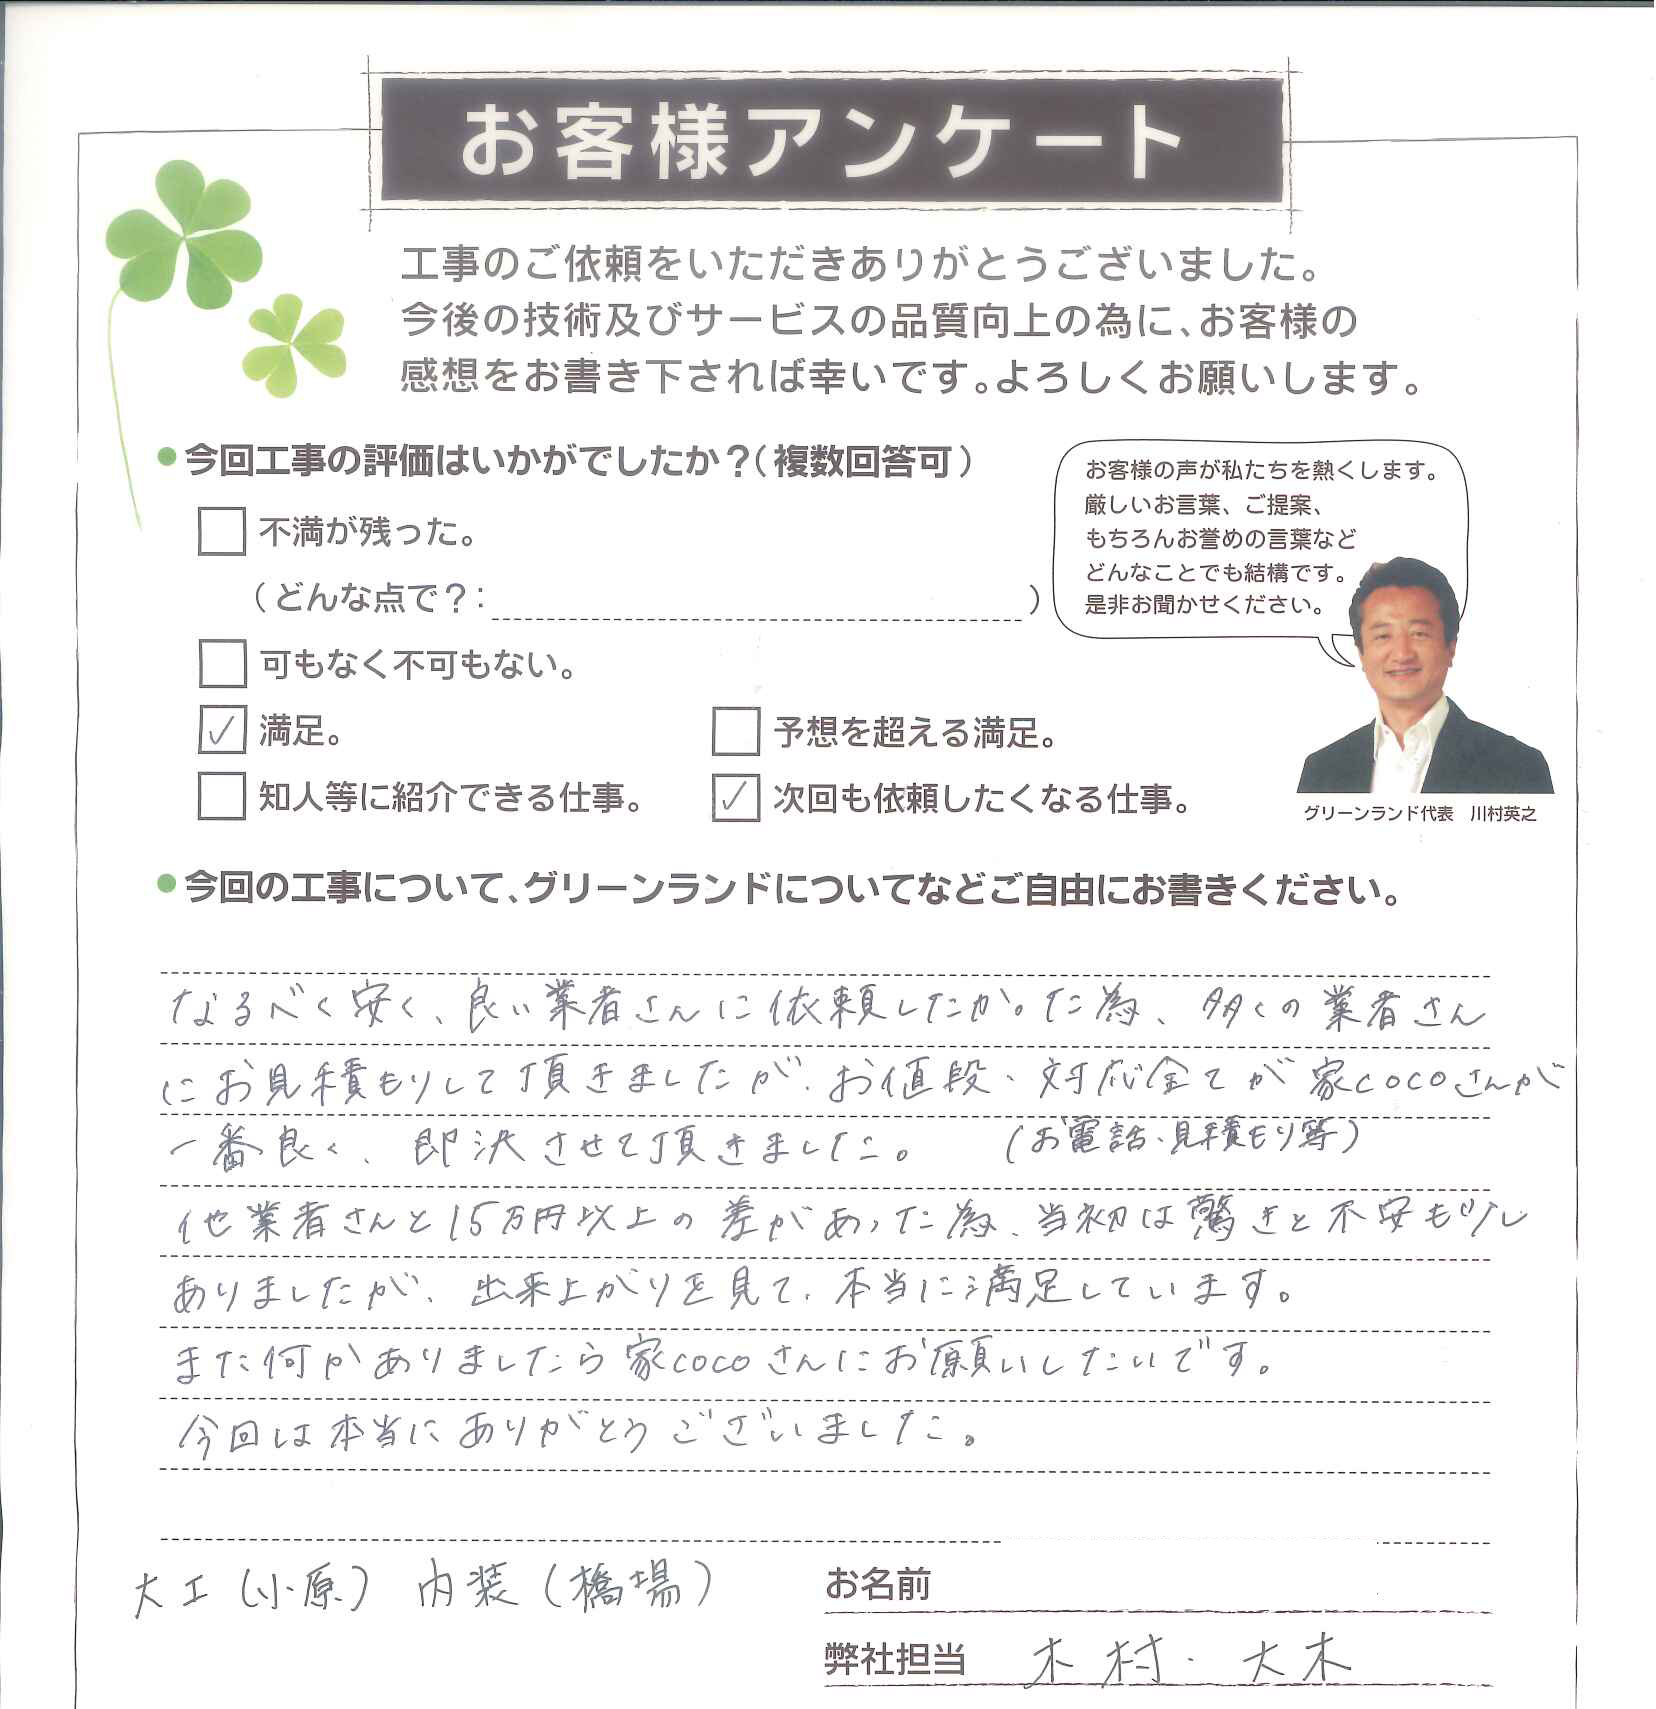 お客様アンケート
工事のご依頼をいただきありがとうございました。
今後の技術及びサービスの品質向上の為に、お客様の
感想をお書き下されば幸いです。よろしくお願いします。
●今回工事の評価はいかがでしたか？（複数回答可）
お客様の声が私たちを熱くします。
厳しいお言葉、ご提案、
もちろんお誉めの言葉など
どんなことでも結構です。
是非お聞かせください。
グリーンランド代表　川村英之
□ 不満が残った。
（どんな点で？：　）
□ 可もなく不可もない。
☑ 満足。　□ 予想を超える満足。
□ 知人等に紹介できる仕事。　☑ 次回も依頼したくなる仕事。
●今回の工事について、グリーンランドについてなどご自由にお書きください。
なるべく安く、良い業者さんに依頼したかった為、多くの業者さん
にお見積もりして頂きましたが、お値段、対応全てが家cocoさんが
一番良く、即決させて頂きました。　（お電話、見積もり等）
他業者さんと15万円以上の差があった為、当初は驚きと不安も少し
ありましたが、出来上がりを見て、本当に満足しています。
また何かありましたら家cocoさんにお願いしたいです。
今回は本当にありがとうございました。
大工（小原）　内装（橋場）
お名前
弊社担当　木村・大木